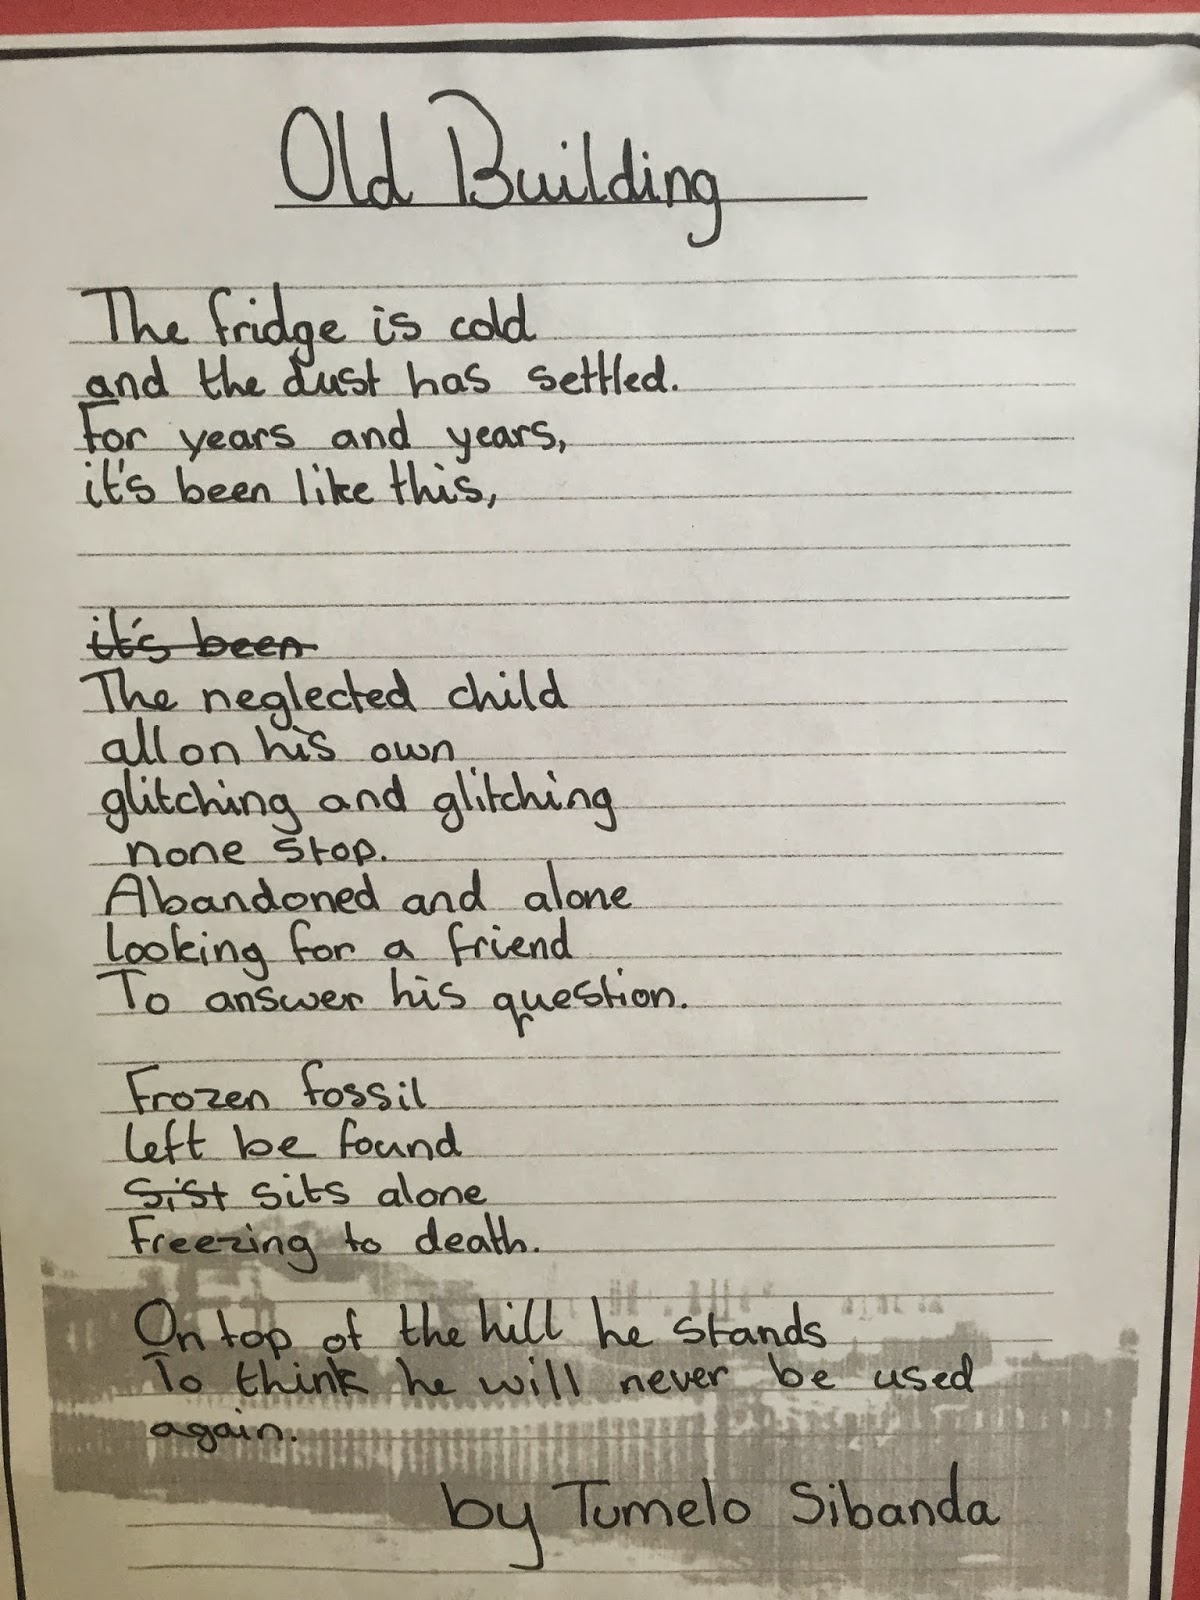 Old Building
The fridge is cold
and the dust has settled.
For years and years,
it's been like this,
it's been
The neglected child
all on his own
glitching and glitching
none stop.
Abandoned and alone
looking for a friend
To answer his question.
Frozen fossil
left be found
Sist sits alone
Freezing to death.
On top of the hill he stands
To think he will never be used
again.
by Tumelo Sibanda